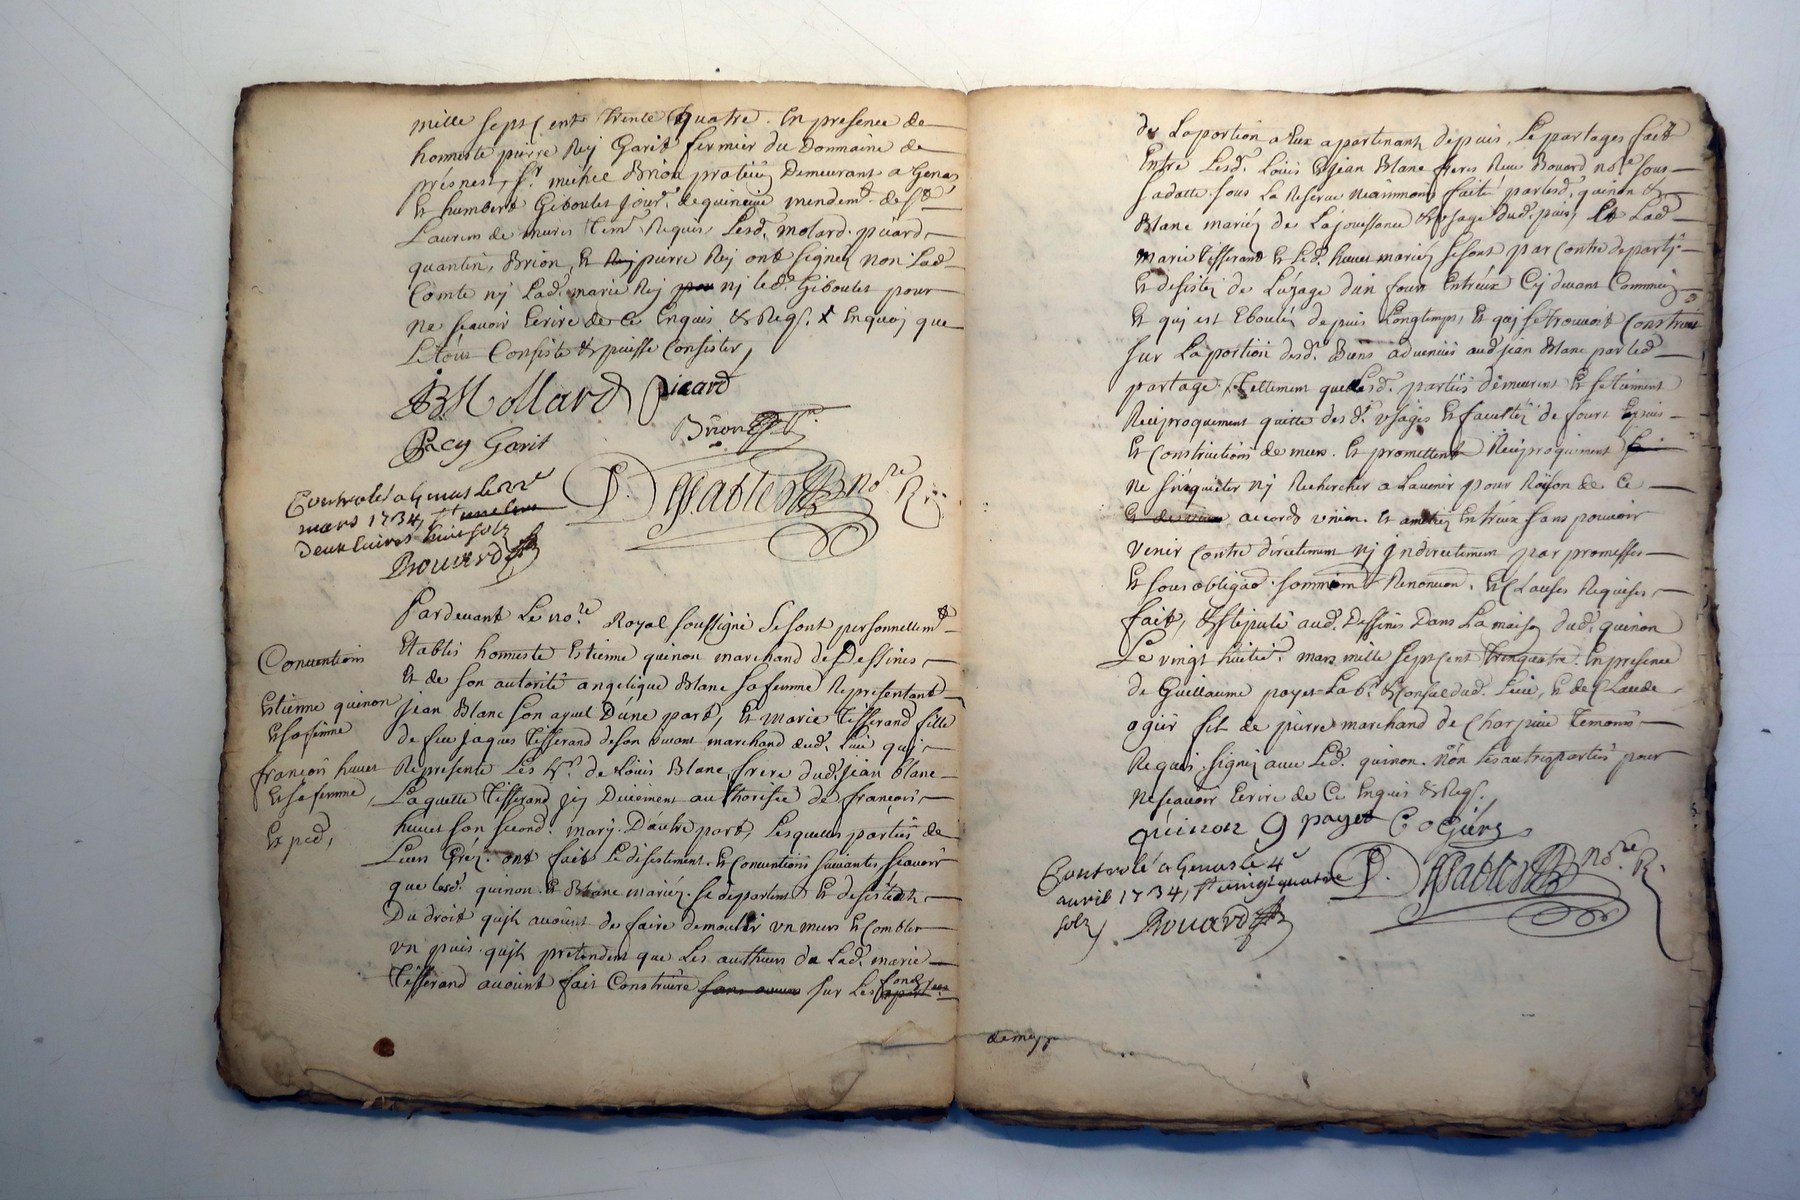 mille sept cent trente quatre. En presence de
honneste pierre Rey Garit fermier du Dommaine de
présnest, Sr. michel Brion praticien Demeurant a Genas
Et humbert Giboulet jour. de quincieu mendemt. de St.
Laurens de mures tem. Requis, Lesd. molard. picard,
quantin, Brion, Et Rey pierre Rey ont signez non Lad.
Comte nj Lad. marie Rey nj led. Giboulet pour
ne scavoir Ecrire de Ce Enquis & Reqs. X En quoj que
Le tout Consiste & puisse Consister,
JB Mollard picard
Brion
P Rey Garit
P. Dessables nore. R.
Controlé a Genas le 22e
mars 1734, rt une livre
deux livres huit solz
Bouard
Pardevant Le nore. Royal soussigné Se sont personnellemt.
Etablis honneste Estienne quinon marchand de Dessines,
Et de son autorité angelique Blanc sa femme Representant
jean Blanc son ayeul D'une part, Et marie Tisserand fille
de feu Jaques Tisserand de son vivant marchand dud. Lieu quj
Represente Les hrs. de Louis Blanc frere dud. jean blanc
Laquelle Tisserand jcy Düement authorisée de françois
huuet son second. mary. D'autre part, Lesquelles parties de
Leurs Gréz. ont fait Le desistement. Et Conventions suivantes scavoir
que lesd. quinon. Et Blanc mariéz. se departent Et desistent
Du droit qujls avoient de faire demolir un murs Et Combler
un puis qujls pretendent que Les autheurs de Lad. marie
Tisserand avoient fait Construire sans aucun sur Les fonds
Conventions
Estienne quinon
Et sa femme
françois huuet
Et sa femme
de La portion a Eux apartenant depuis Le partages fait
Entre Lesd. Louis & jean Blanc freres Receu Bouard nore. sous
sa datte. sous La Reserve neanmoins faite par lesd. quinon &
Blanc mariéz de La jouissance & usage dud. puis, Et Lad.
Marie Tisserand Et Led. huuet mariéz se sont par Contre departj
Et desistez de L'uzage d'un four Entr'eux Cy devant Commun
Et quj est Eboulé depuis Longtemps, Et quj se trouvoit Construit
sur La portion desd. Biens advenües aud. jean Blanc par led.
partage, Tellement que Lesd. parties demeurent Et se tiennent
Reciproquement quitte desd. usages Et facultéz de fours Et puis
Et Constructions de murs. Et promettent Reciproquement
ne s'inquieter nj Rechercher a L'avenir pour Raison de Ce
accords union. Et amitiéz Entr'eux sans pouvoir
venir Contre directement nj jndirectement par promesses
Et sous obligao. sommon. Renoncion. Et Clauses Requises,
fait, & stipulé aud. Dessines Dans La maison dud. quinon
Le vingt huitie. mars mille sept cent trente quatre. En presence
de Guillaume payet Lab. & Consul dud. Lieu, Et de Claude
ogier fils de pierre marchand de Charpieu temoins
Requis. signéz avec Led. quinon. Non Les autres parties pour
ne scavoir Ecrire de Ce Enquis & Reqs.
quinon G payet C ogier
P. Dessables nore. R.
Controlé a Genas le 4e
avril 1734, rt vingt quatre
solz
Bouard